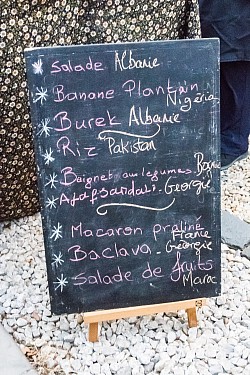 Salade Albanie
Banane Plantain
Nigéria
Burek Albanie
Riz Pakistan
Beignet aux legumes. Bosnie
Ajapsandali. Georgie
Macaron praliné
France
Baclava. Georgie
Salade de fruits
Maroc